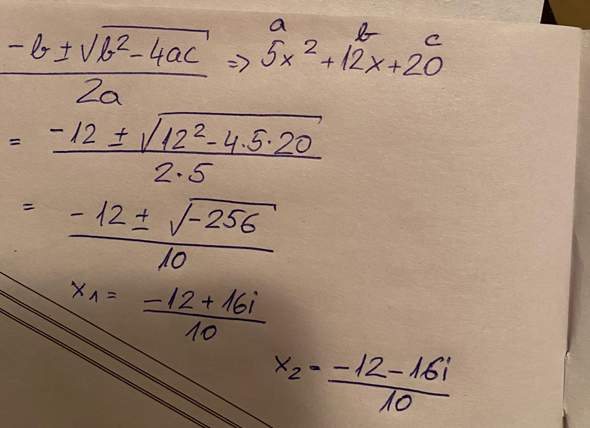 a b c
-b ± √b² - 4ac / 2a => 5x² + 12x + 20
= -12 ± √12² - 4·5·20 / 2·5
= -12 ± √-256 / 10
x₁ = -12 + 16i / 10
x₂ = -12 - 16i / 10